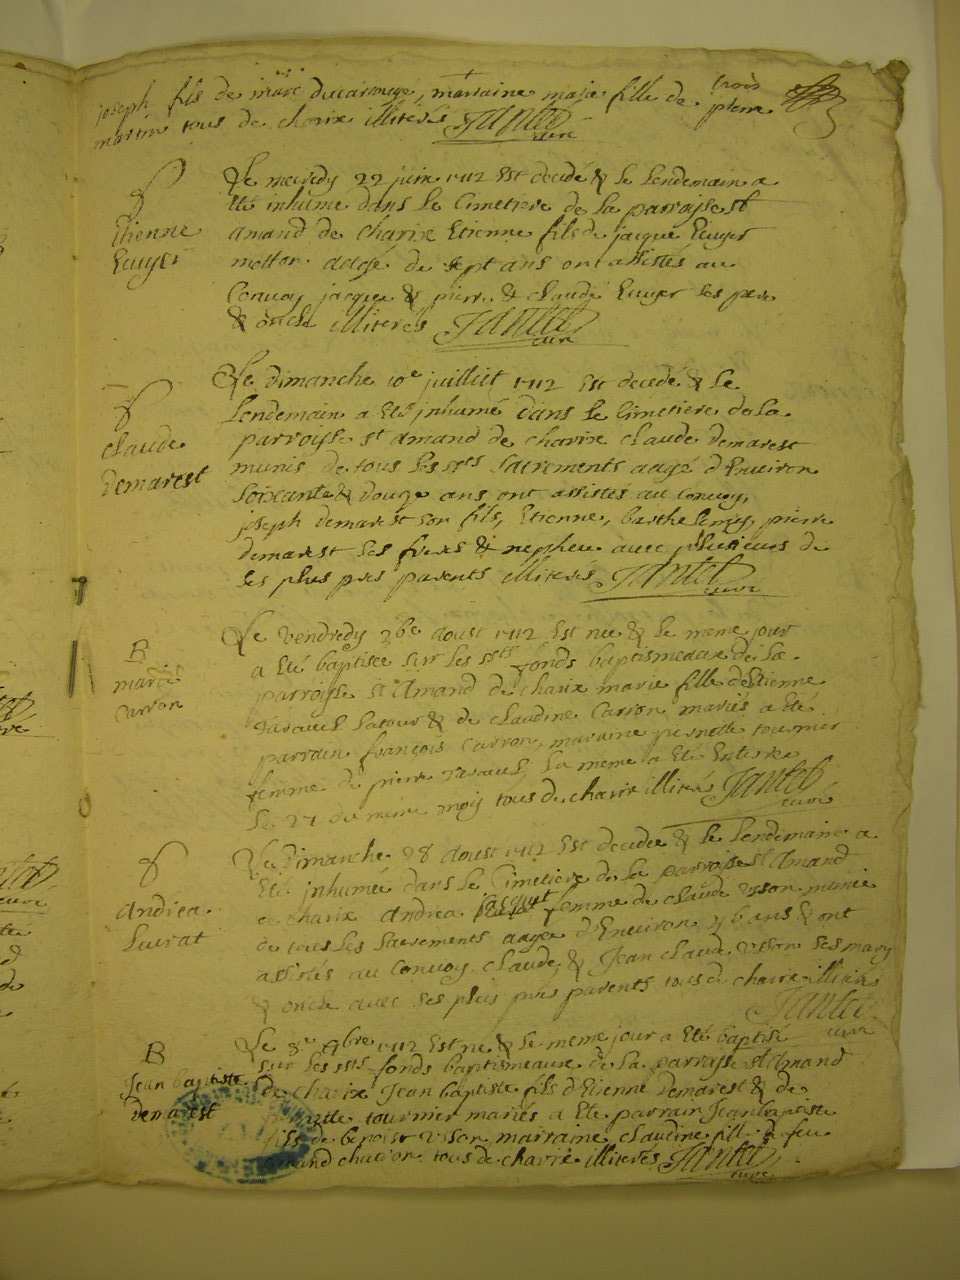 joseph fils de marc ducarouge, marraine maje fille de pierre trois
martin tous de charix illiterés Jantet
curé
Le mecredy 22 juin 1712 Est decedé & le Lendemain a
Eté inhumé dans le Cimetiere de la parroisse st
Etienne
Amand de charix Etienne fils de jacque Euyer
Euyer
motton aagé de sept ans ont assistes au
Convoy jacque & pierre & claude Euyer ses pere
& oncle illiterés Jantet
curé
Le dimanche 10e juillet 1712 Est decedé & le
Lendemain a Eté jnhumé dans le Cimetiere de la
claude
parroisse st amand de charix claude Demarest
Demarest
munis de tous les sts sacrements aagé d'Environ
soixante & douze ans ont assistés au convoy,
joseph demarest son fils, Etienne, barthelemy, pierre
demarest ses freres & nepheu avec plusieurs de
ses plus pres parents illiterés Jantet
curé
Le vendredy 26e aoust 1712 Est nee & le meme jour
B
a Eté baptisée sur les sts fonds baptismeaux de la
marie
parroisse st Amand de charix marie fille d'Etienne
Carron
latour & de claudine Carron mariés a Eté
parrain françois Carron, maraine pernette tournier
femme de pierre la meme a Eté
Le 27 du meme mois tous de charix illiterés Jantet
curé
Le dimanche 28 Aoust 1712 Est decedée & le Lendemain a
Eté jnhumée dans le Cimetiere de la parroisse st Amand
Andrea
de charix Andrea femme de claude munie
Luirat
de tous les sacrements aagée d'Environ ans & ont
assistés au Convoy claude & Jean claude ses mary
& oncle avec ses plus pres parents tous de charix illiterés
Jantet
curé
Le 8e 7bre 1712 Est né & le meme jour a Eté baptisé
B
sur les sts fonds baptismeaux de la parroisse st Amand
Jean baptiste
de charix Jean baptiste fils d'Etienne Demarest & de
Demarest
tournier mariés a Eté parrain Jean baptiste
fils de marraine claudine fille de feu
tous de charix illiterés Jantet
curé